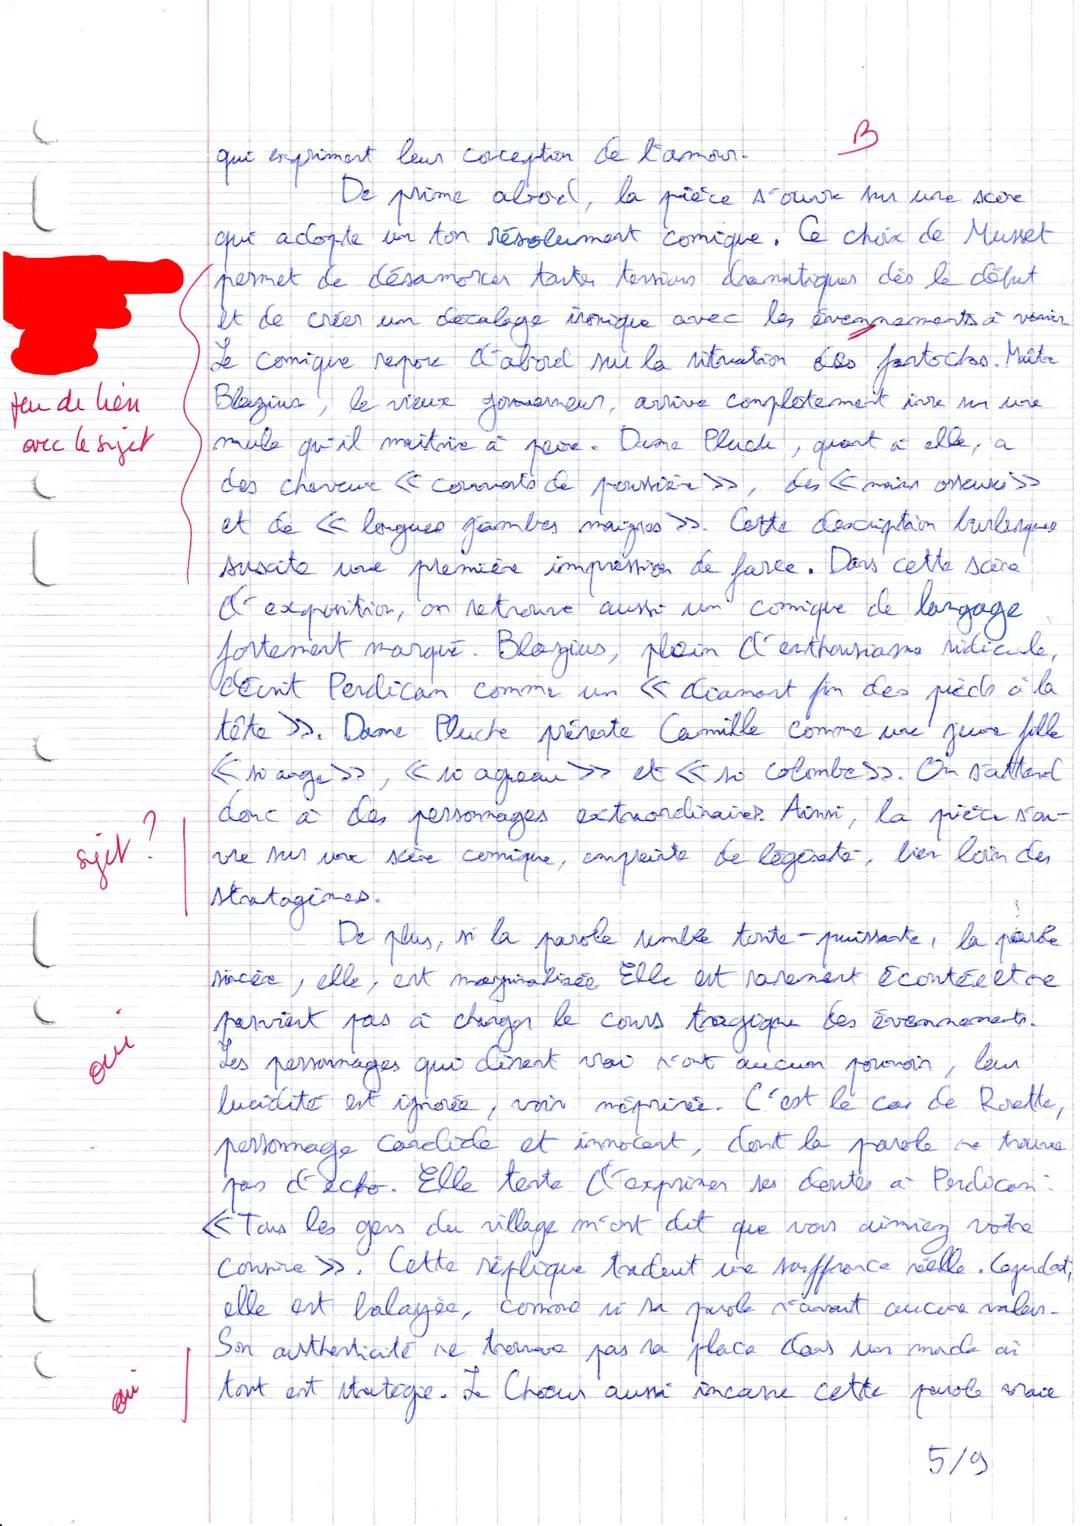 B
qui expriment leur conception de l'amour.
De prime abord, la pièce s'ouvre sur une scène
qui adopte un ton résolument comique. Ce choix de Musset
permet de désamorcer toutes tensions dramatiques dès le début
et de créer un décalage ironique avec les évennements à venir
Le comique repose d'abord sur la situation des fantoches. Maître
Blazius, le vieux gouverneur, arrive complètement ivre sur une
peu de lien
avec le sujet
mule qu'il maitrise à peine. Dame Pluche, quant à elle, a
des cheveux << couverts de poussière >>, des << mains osseuses >>
et de << longues jambes maigres >>. Cette description burlesque
suscite une première impression de farce. Dans cette scène
d'exposition, on retrouve aussi un comique de langage
fortement marqué. Blazius, plein d'enthousiasme ridicule,
décrit Perdican comme un << diamant fin des pieds à la
tête >>. Dame Pluche présente Camille comme une jeune fille
<< si ange >>, << si agneau >> et << si colombe >>. On s'attend
donc à des personnages extraordinaires. Ainsi, la pièce s'ou-
sujet ?
vre sur une scène comique, empreinte de légèreté, bien loin des
stratagèmes.
De plus, si la parole semble toute-puissante, la parole
sincère, elle, est marginalisée Elle est rarement écoutée et ne
parvient pas à changer le cours tragique des évennements.
oui
Les personnages qui disent vrai n'ont aucun pouvoir, leur
lucidité est ignorée, voir méprisée. C'est le cas de Rosette,
personnage candide et innocent, dont la parole ne trouve
pas d'écho. Elle tente d'exprimer ses doutes à Perdican :
<< Tous les gens du village m'ont dit que vous aimiez votre
cousine >>. Cette réplique traduit une souffrance réelle. Cependant,
elle est balayée, comme si sa parole n'avait aucune valeur.
Son authenticité ne trouve pas sa place dans un monde où
oui
tout est stratégie. Le Chœur aussi incarne cette parole vraie
5/9